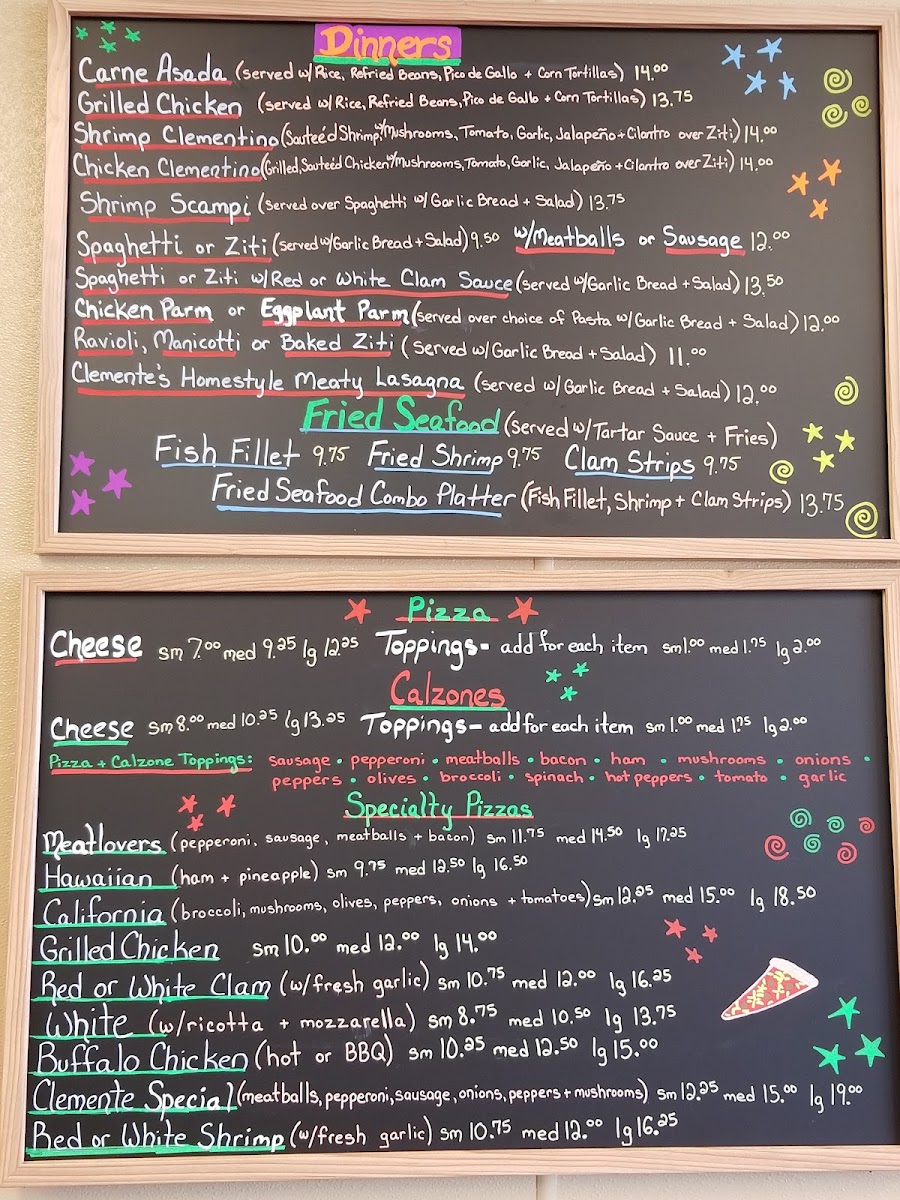 Dinners
Carne Asada (served w/Rice, Refried Beans, Pico de Gallo + Corn Tortillas) 14.00
Grilled Chicken (served w/Rice, Refried Beans, Pico de Gallo + Corn Tortillas) 13.75
Shrimp Clementino (Sauteéd Shrimp w/Mushrooms, Tomato, Garlic, Jalapeño + Cilantro over Ziti) 14.00
Chicken Clementino (Grilled, Sauteéd Chicken w/Mushrooms, Tomato, Garlic, Jalapeño + Cilantro over Ziti) 14.00
Shrimp Scampi (Served over Spaghetti w/Garlic Bread + Salad) 13.75
Spaghetti or Ziti (served w/Garlic Bread + Salad) 9.50 w/Meatballs or Sausage 12.00
Spaghetti or Ziti w/Red or White Clam Sauce (served w/Garlic Bread + Salad) 13.50
Chicken Parm or Eggplant Parm (served over choice of Pasta w/Garlic Bread + Salad) 12.00
Ravioli, Manicotti or Baked Ziti (Served w/Garlic Bread + Salad) 11.00
Clemente's Homestyle Meaty Lasagna (served w/Garlic Bread + Salad) 12.00
Fried Seafood (served w/Tartar Sauce + Fries)
Fish Fillet 9.75 Fried Shrimp 9.75 Clam Strips 9.75
Fried Seafood Combo Platter (Fish Fillet, Shrimp + Clam Strips) 13.75
Pizza
Cheese sm 7.00 med 9.25 lg 12.25 Toppings- add for each item sm 1.00 med 1.75 lg 2.00
Calzones
Cheese sm 8.00 med 10.25 lg 13.25 Toppings- add for each item sm 1.00 med 1.75 lg 2.00
Pizza + Calzone Toppings: sausage • pepperoni • meatballs • bacon • ham • mushrooms • onions •
peppers • olives • broccoli • spinach • hot peppers • tomato • garlic
Specialty Pizzas
Meatlovers (pepperoni, sausage, meatballs + bacon) sm 11.75 med 14.50 lg 17.25
Hawaiian (ham + pineapple) sm 9.75 med 12.50 lg 16.50
California (broccoli, mushrooms, olives, peppers, onions + tomatoes) sm 12.25 med 15.00 lg 18.50
Grilled Chicken sm 10.00 med 12.00 lg 14.00
Red or White Clam (w/fresh garlic) sm 10.75 med 12.00 lg 16.25
White (w/ricotta + mozzarella) sm 8.75 med 10.50 lg 13.75
Buffalo Chicken (hot or BBQ) sm 10.25 med 12.50 lg 15.00
Clemente Special (meatballs, pepperoni, sausage, onions, peppers + mushrooms) sm 12.25 med 15.00 lg 19.00
Red or White Shrimp (w/fresh garlic) sm 10.75 med 12.00 lg 16.25